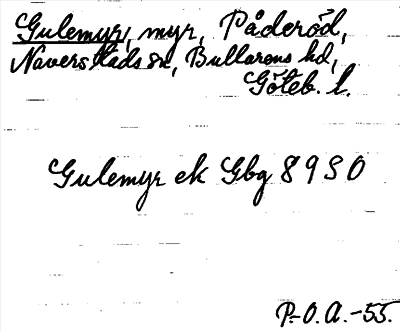 Gulemyr, myr, Påderöd,
Naverstads sn, Bullarens hd,
Göteb. l.
Gulemyr ek Gbg 8 9 S O
P.-O. A. -55.